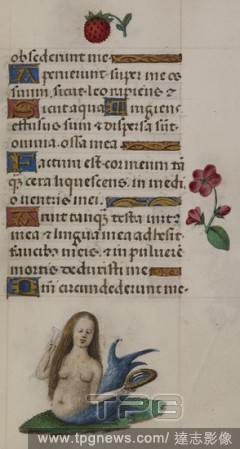 obsederunt me.
Aperuerunt super me os
suum, sicut leo rapiens &
Sicut aqua rugiens
effusus sum & dispersa sūt
omnia ossa mea.
Factum est cor meum tā
quā cera liquescens in medi
o ventris mei.
Aruit tanquā testa virt9
mea & lingua mea adhesit
faucibus meis, & in pulverē
mortis deduxisti me.
Qm̄ circumdederunt me
TPG
www.tpgnews.com / 達志影像